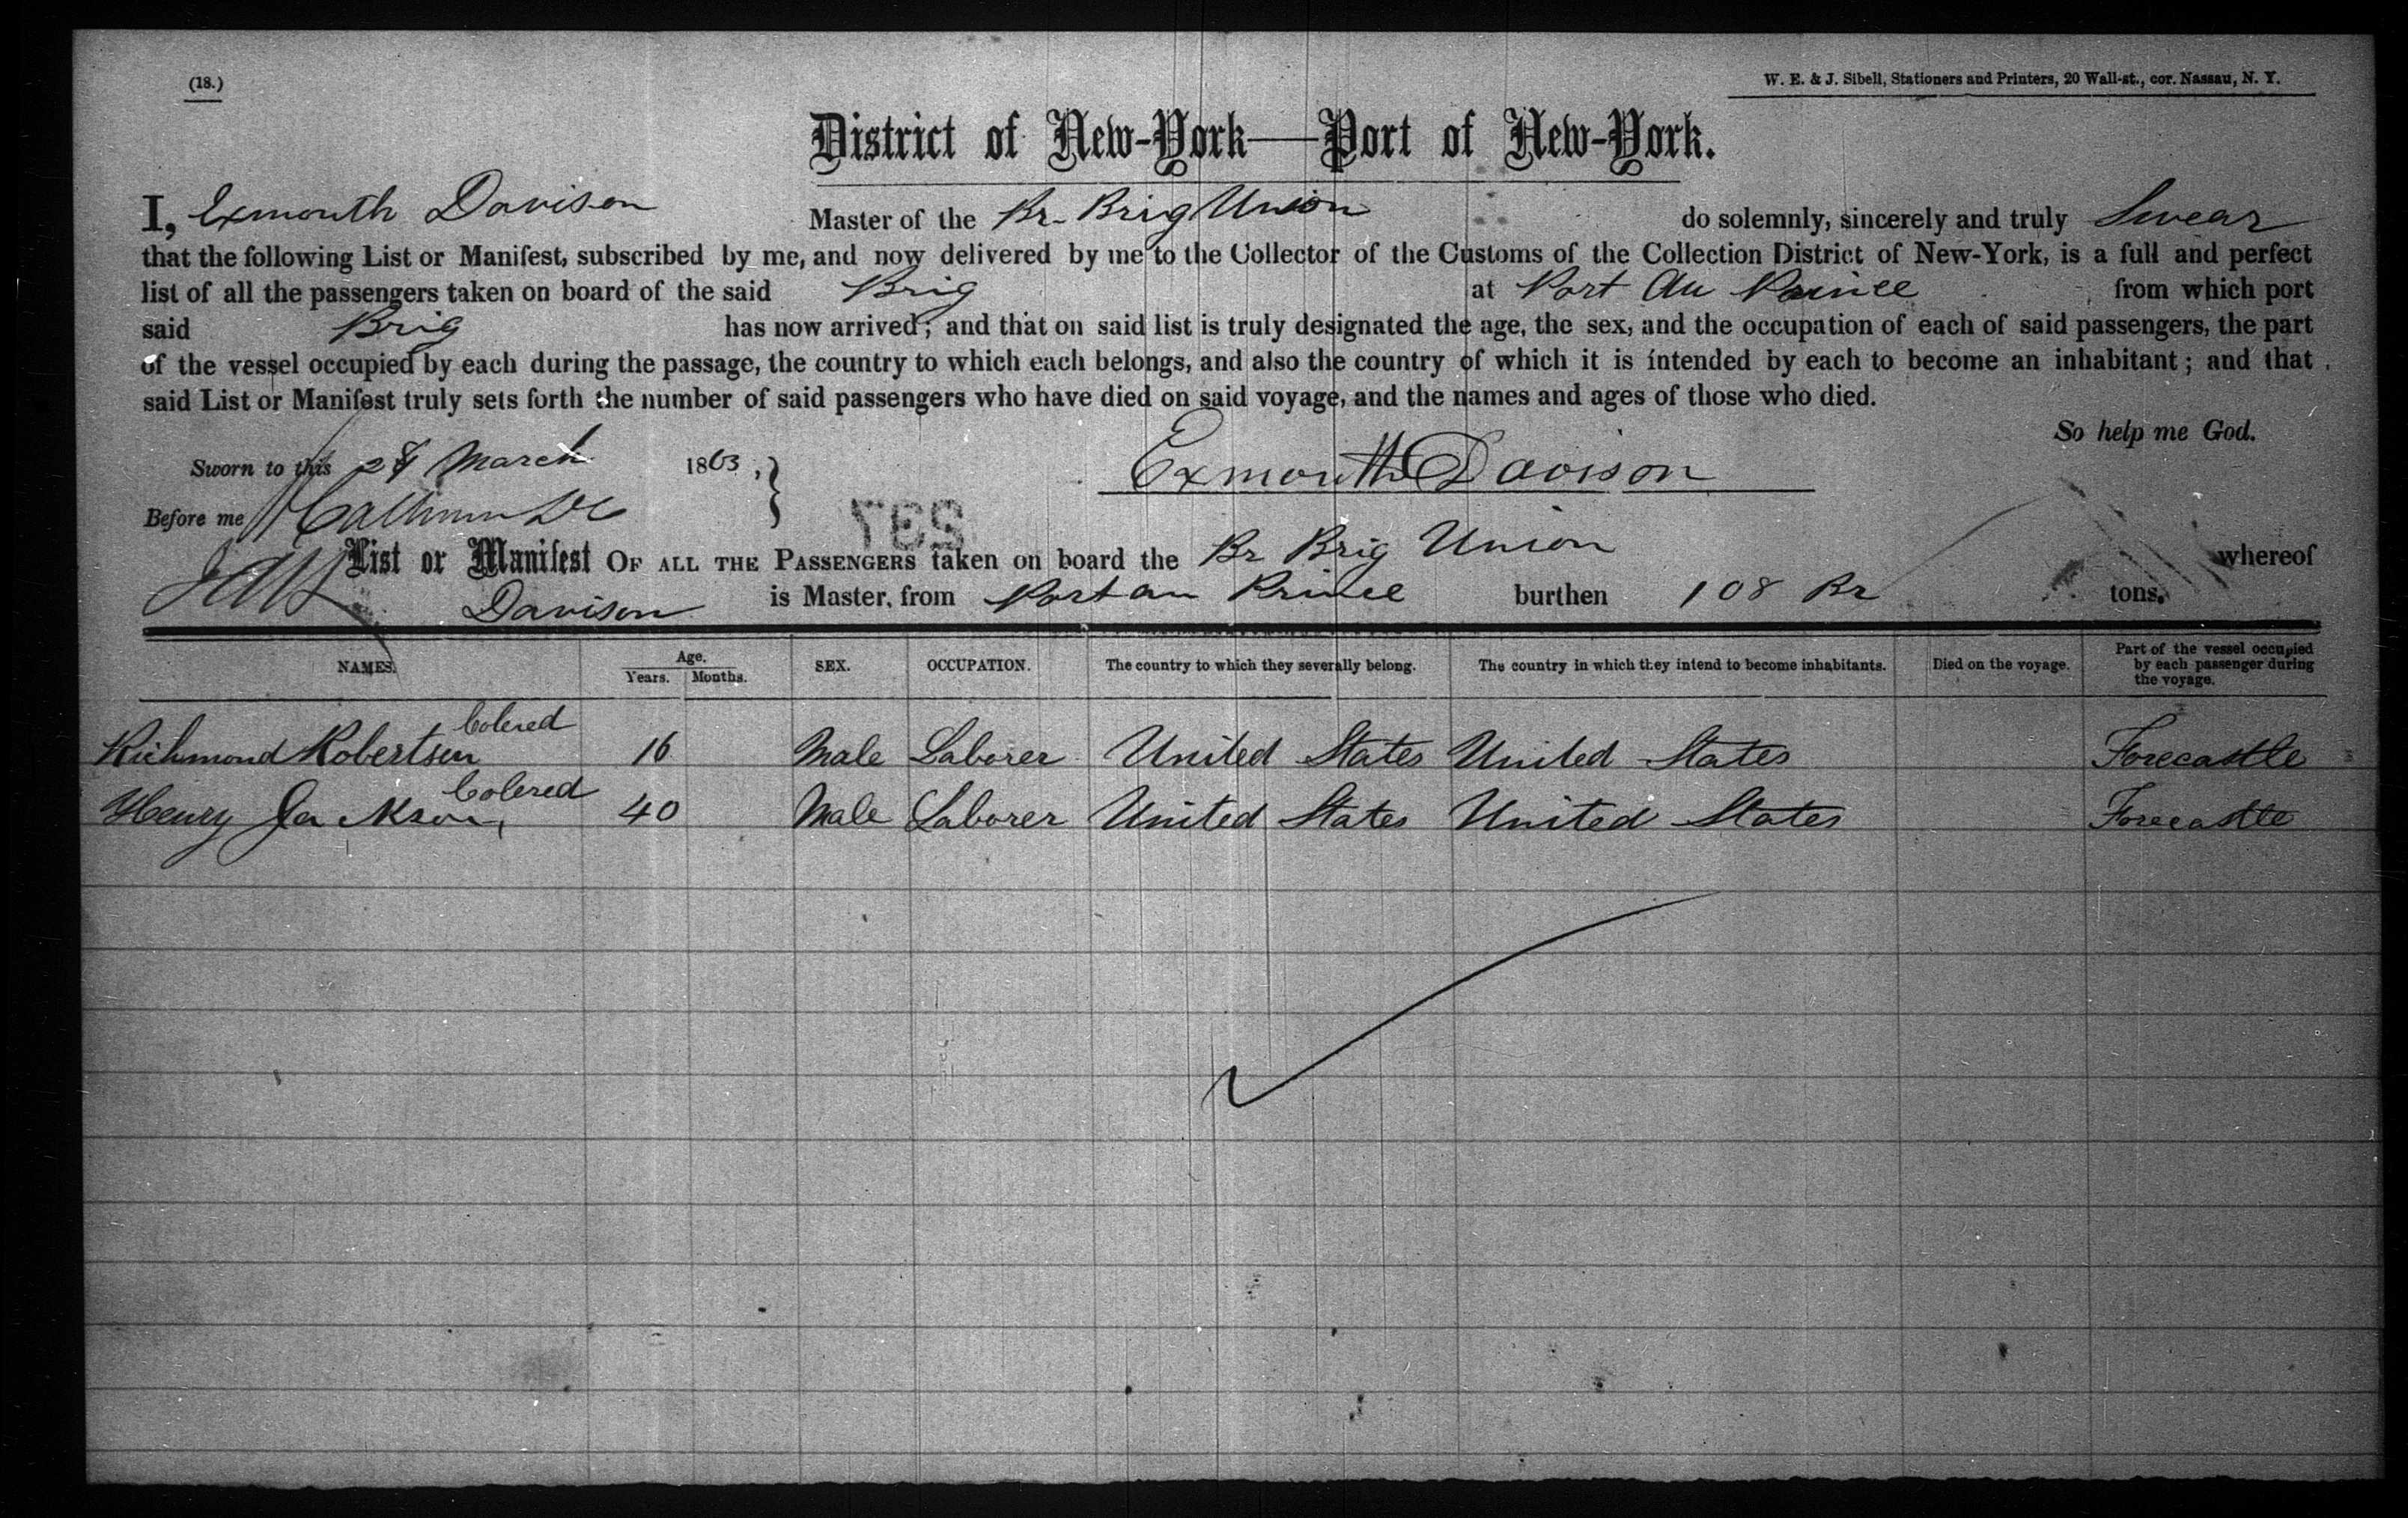 (18.)
W. E. & J. Sibell, Stationers and Printers, 20 Wall-st., cor. Nassau, N. Y.
District of New-York—Port of New-York.
I, Exmouth Davison Master of the Br. Brig Union do solemnly, sincerely and truly Swear
that the following List or Manifest, subscribed by me, and now delivered by me to the Collector of the Customs of the Collection District of New-York, is a full and perfect
list of all the passengers taken on board of the said Brig at Port Au Prince from which port
said Brig has now arrived; and that on said list is truly designated the age, the sex, and the occupation of each of said passengers, the part
of the vessel occupied by each during the passage, the country to which each belongs, and also the country of which it is intended by each to become an inhabitant; and that
said List or Manifest truly sets forth the number of said passengers who have died on said voyage, and the names and ages of those who died.
So help me God.
Sworn to this March 1863,
Exmouth Davison
Before me
List or Manifest OF ALL THE PASSENGERS taken on board the Br Brig Union whereof
Davison is Master, from Port au Prince burthen 108 Br tons.
NAMES. Age. Years. Months. SEX. OCCUPATION. The country to which they severally belong. The country in which they intend to become inhabitants. Died on the voyage. Part of the vessel occupied by each passenger during the voyage.
Richmond Robertson Colered 16 Male Laborer United States United States Forecastle
Henry Jackson, Colered 40 Male Laborer United States United States Forecastle